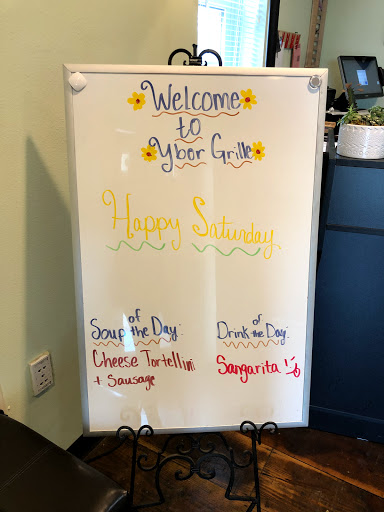 Welcome
to
Ybor Grille
Happy Saturday
Soup of the Day:
Cheese Tortellini
+ Sausage
Drink of the Day:
Sangarita!